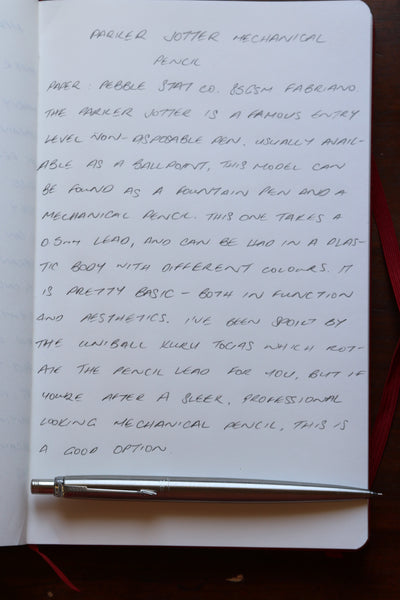 PARKER JOTTER MECHANICAL
PENCIL
PAPER: PEBBLE STAT CO. 85GSM FABRIANO
THE PARKER JOTTER IS A FAMOUS ENTRY
LEVEL NON-DISPOSABLE PEN. USUALLY AVAIL-
ABLE AS A BALLPOINT, THIS MODEL CAN
BE FOUND AS A FOUNTAIN PEN AND A
MECHANICAL PENCIL. THIS ONE TAKES A
0.5mm LEAD, AND CAN BE HAD IN A PLAS-
TIC BODY WITH DIFFERENT COLOURS. IT
IS PRETTY BASIC - BOTH IN FUNCTION
AND AESTHETICS. I'VE BEEN SPOILT BY
THE UNIBALL KURU TOGAS WHICH ROT-
ATE THE PENCIL LEAD FOR YOU, BUT IF
YOU'RE AFTER A SLEEK, PROFESSIONAL
LOOKING MECHANICAL PENCIL, THIS IS
A GOOD OPTION.